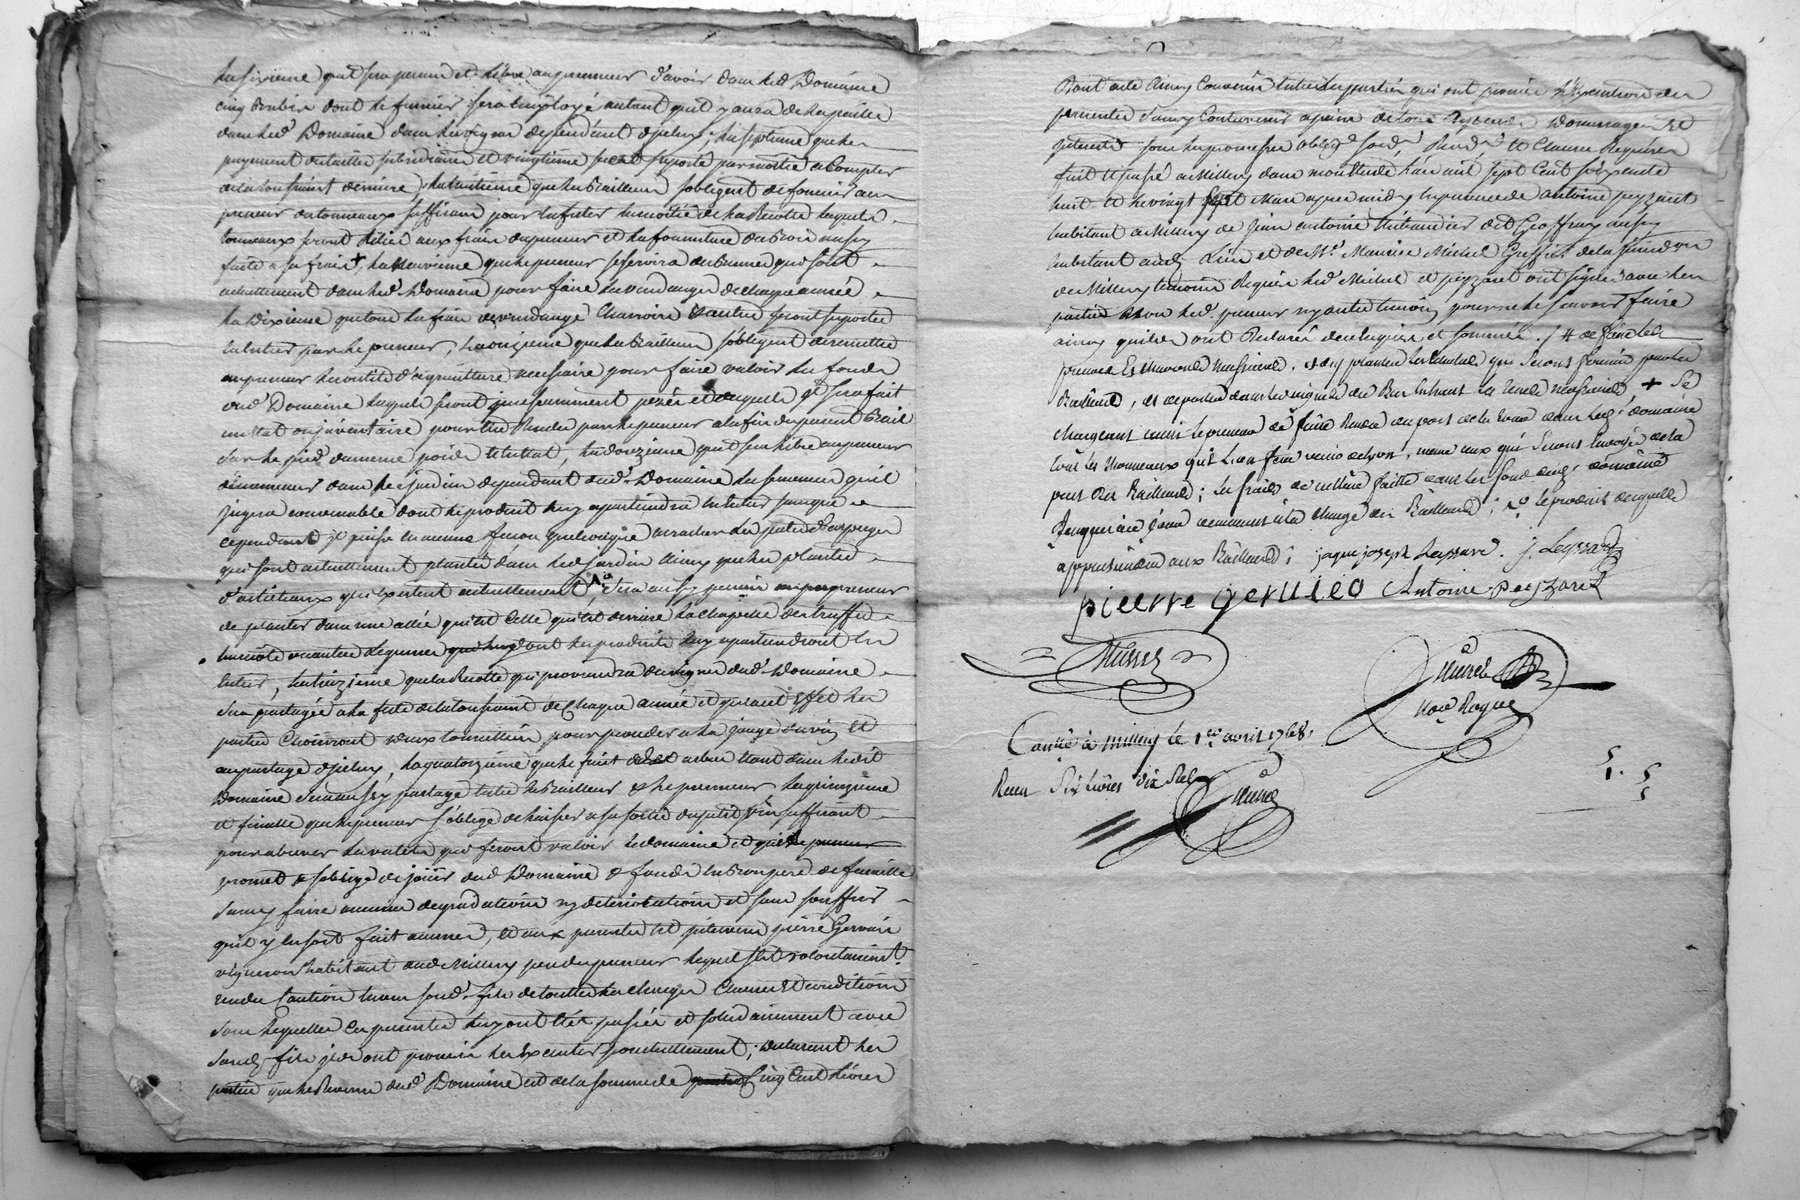 La sixieme qu'il sera permis et libre au preneur d'avoir dans led Domaine
cinq Brebis dont le fumier sera Employé autant qu'il y aura de la paille
dans led. Domaine dans les vignes dependant d'jceluy, La septieme que le
payement des tailles subsidiaire et vingtieme seront suporté par moitié a Compter
de la toussaint derniere, La huitieme que les Bailleurs s'obligent de fournir au
preneur des tonneaux suffisant pour Enfuter la moitié de la Recolte lesquels
tonneaux seront Reliés aux frais du preneur et la fourniture du Bois aussy
faite a ses frais + La Neuvieme que le preneur se servira des Bennes qui sont
actuellement dans led. Domaine pour faire les vendanges de chaque année
La Dixieme que tous les frais de vendange Charrois et autre seront suportés
En entier par le preneur, La onzieme que les Bailleurs s'obligent de remettre
au preneur les outils d'agriculture necessaire pour faire valoir les fonds
dud Domaine lesquels seront prealablement pezés et desquels il sera fait
un Etat ou jnventaire pour être Rendu par le preneur a la fin du present Bail
sur le pied du meme poids et Etat, La douzieme qu'il sera libre au preneur
d'ensemencer dans le jardin dependant dud. Domaine les semences qu'il
jugera convenable dont le produit luy apartiendra En Entier sans que
cependant il puisse En aucune facon quelconque arracher les pates d'asperges
qui sont actuellement plantés dans led jardin Ainsy que les plantes
d'artichaux qui Existent actuellement, sera aussy permis au preneur
de planter dans une allée qu'est Celle qu'est derriere la chapelle des truffes
dont les produits luy apartiendront En
Entier, La treizieme que la Recolte qui proviendra des vignes dud. Domaine
sera partagée a la fete de la toussaint de Chaque année et qu'a cet Effet les
parties Choisiront deux tonneliers pour proceder a la jauge du vin Et
au partage d'jceluy, La quatorzieme que le fruit des arbres Etant dans ledit
Domaine sera aussy partagé Entre les Bailleurs et le preneur La quinzieme
et finalle que le preneur s'oblige de laisser a sa sortie du petit vin suffisant
pour abreuver les valets qui feront valoir le domaine et que le preneur
promet et s'oblige de jouir dud Domaine et fonds En Bon pere de famille
sans y faire aucunes degradations ny deteriorations et sans souffrir
qu'il y En soit fait aucunes, Et aux presentes est jntervenu pierre Gervais
vigneron habitant aud Millery pere du preneur lequel s'est volontairement
rendu Caution Envers sond. fils de toutes les charges Clauses Et conditions
sous lesquelles Ces presentes luy ont Eté passées et solidairement avec
sond. fils jls ont promis les Executer ponctuellement; Declarant les
parties que le Revenu dud. Domaine est de la somme de Cinq Cent Livres
Dont acte Ainsy Convenu Entre les parties qui ont promis l'Execution des
presentes sans y Contrevenir a peine de tous depends Dommages Et
jnterests sous les promesses obligo. soud. Rend. et Clauses Requises
fait Et passé a Millery dans mon Etude L'an mil sept Cent soixante
huit Et le vingt sept Mars apres midy En presence de Antoine peyzaret
habitant a Millery de Jean antoine dit Geoffray aussy
habitant aud. Lieu et de Mr. Maurice Michel Greffier de la juridon
de Millery temoins Requis led. Michel et peyzaret ont signés avec les
parties Non led. preneur ny autre temoin pour ne le sçavoir faire
ainsy qu'ils ont Declarés de ce Enquis et sommés. / # de faire les
. et d'y planter les Echalas qui seront fournis par les
Bailleurs, et de porter dans les vignes du Bas
chargeant aussi le preneur de faire Rendre au port de la tour dans led. domaine
tous les Monneaux qu'il Lieu faire venir de Lyon, meme ceux qui seront Envoyés de la
part des Bailleurs; les frais de culture faitte dans les fond dud. domaine
jusqu'a ce jour demeurant a la charge des Bailleurs; et le produit desquelles
appartiendra aux Bailleurs; jaque joseph Leyssard. J. Leyssard
pierre gerveo Antoine peyzaret
Michel
Musset
Nore. Royal
Conllé a millery le 1er. avril 1768.
Recu Six livres dix sols
Musset